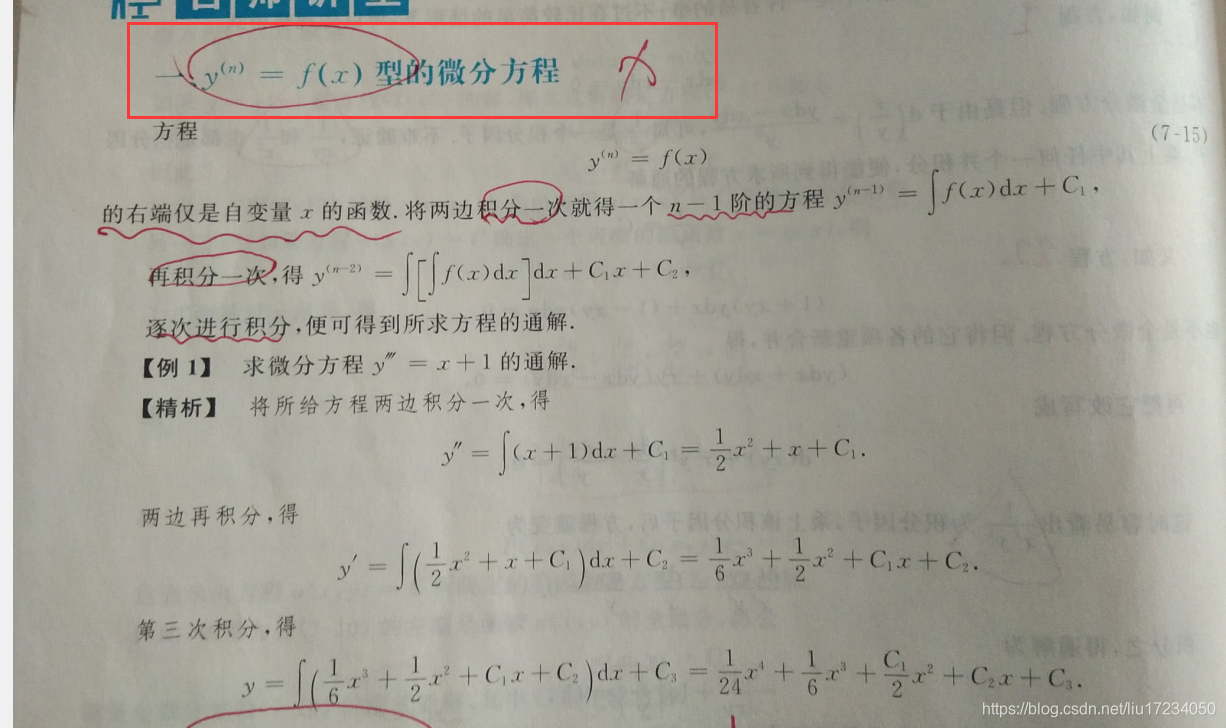 一、y⁽ⁿ⁾ = f(x) 型的微分方程
方程
y⁽ⁿ⁾ = f(x) (7-15)
的右端仅是自变量 x 的函数. 将两边积分一次就得一个 n−1 阶的方程 y⁽ⁿ⁻¹⁾ = ∫f(x)dx + C₁,
再积分一次,得 y⁽ⁿ⁻²⁾ = ∫[∫f(x)dx]dx + C₁x + C₂,
逐次进行积分,便可得到所求方程的通解.
【例 1】 求微分方程 y‴ = x+1 的通解.
【精析】 将所给方程两边积分一次,得
y″ = ∫(x+1)dx + C₁ = 1/2 x² + x + C₁.
两边再积分,得
y′ = ∫(1/2 x² + x + C₁)dx + C₂ = 1/6 x³ + 1/2 x² + C₁x + C₂.
第三次积分,得
y = ∫(1/6 x³ + 1/2 x² + C₁x + C₂)dx + C₃ = 1/24 x⁴ + 1/6 x³ + C₁/2 x² + C₂x + C₃.
https://blog.csdn.net/liu17234050